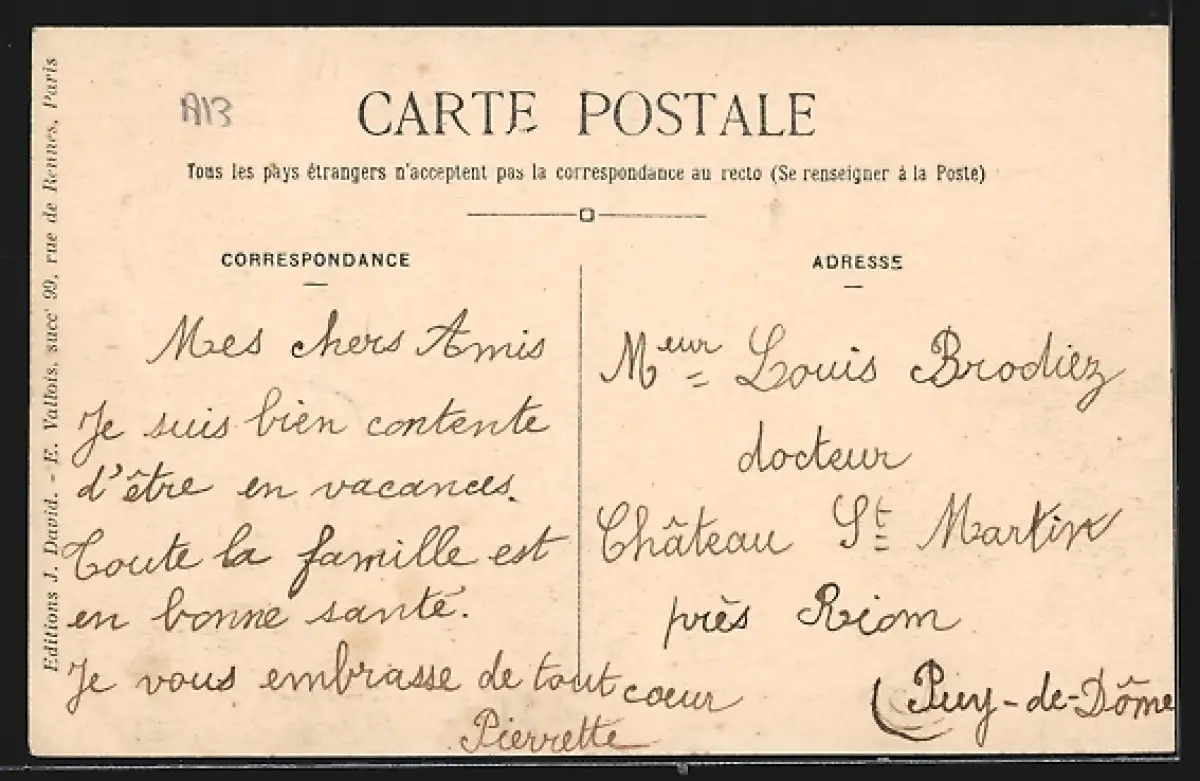 Editions J. David. - E. Vallois, succ' 99, rue de Rennes, Paris
A13
CARTE POSTALE
Tous les pays étrangers n'acceptent pas la correspondance au recto (Se renseigner à la Poste)
CORRESPONDANCE
Mes chers Amis
Je suis bien contente
d'être en vacances.
Toute la famille est
en bonne santé.
Je vous embrasse de tout coeur
Pierrette
ADRESSE
Meur Louis Brodiez
docteur
Château St Martin
près Riom
(Puy-de-Dôme